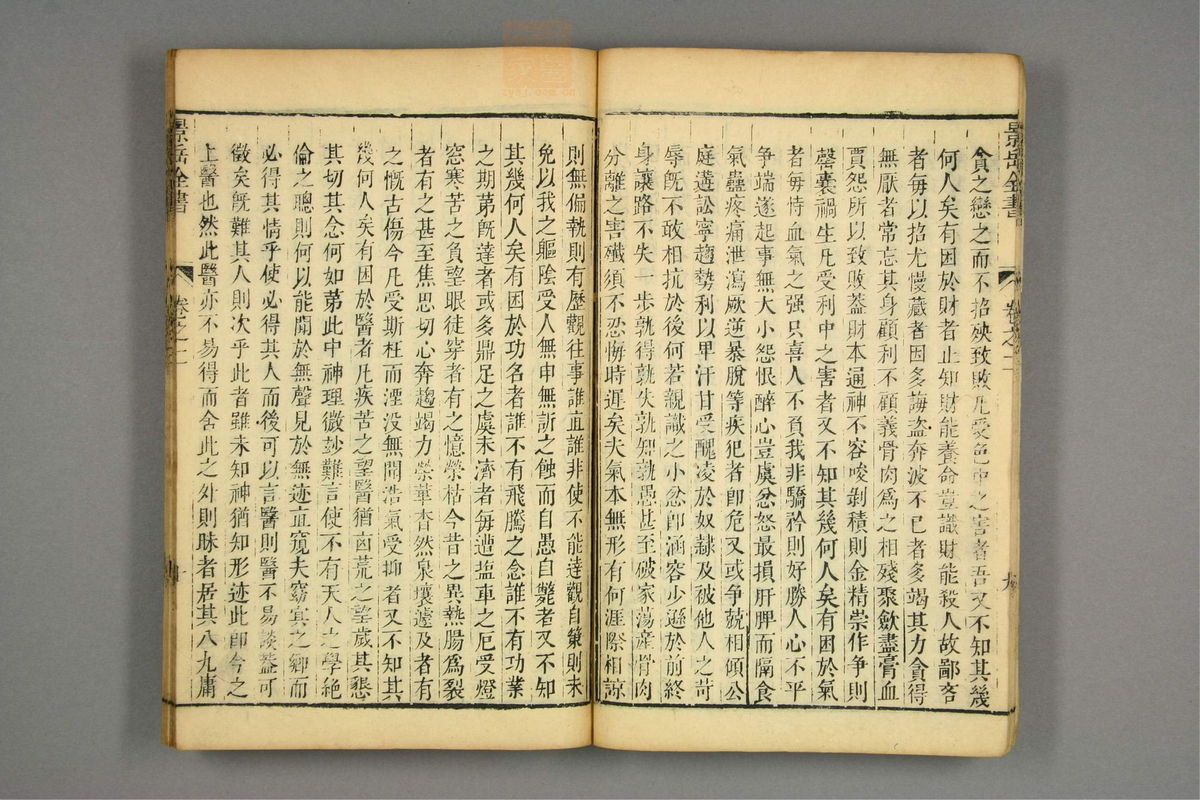 景岳全書
卷之二
貪之戀之而不招殃致敗凡受色中之害者吾又不知其幾
何人矣有困於財者止知財能養命豈識財能殺人故鄙吝
者每以招尤慢藏者因多誨盜奔波不已者多竭其力貪得
無厭者常忘其身顧利不顧義骨肉爲之相殘聚歛盡膏血
賈怨所以致敗葢財本通神不容唆剝積則金精祟作爭則
罄囊禍生凡受利中之害者又不知其幾何人矣有困於氣
者每恃血氣之强只喜人不負我非驕矜則好勝人心不平
爭端遂起事無大小怨恨醉心豈虞忿怒最損肝脾而隔食
氣蠱疼痛泄瀉厥逆暴脫等疾犯者卽危又或爭競相傾公
庭遘訟寧趨勢利以卑汙甘受醜凌於奴隷及被他人之苛
辱旣不敢相抗於後何若親識之小忿卽涵容少遜於前終
身讓路不失一步孰得孰失孰知孰愚甚至破家蕩産骨肉
分離之害殲須不忍悔時遲矣夫氣本無形有何涯際相諒
則無偏執則有歷觀往事誰直誰非使不能達觀自策則未
免以我之軀陰受人無申無訢之蝕而自愚自斃者又不知
其幾何人矣有困於功名者誰不有飛騰之念誰不有功業
之期第旣達者或多鼎足之虞未濟者每遭塩車之厄受燈
窓寒苦之負望眼徒穿者有之憶榮枯今昔之異熱腸爲裂
者有之甚至焦思切心奔趨竭力榮華杳然泉壤遽及者有
之慨古傷今凡受斯枉而湮没無聞浩氣受抑者又不知其
幾何人矣有困於醫者凡疾苦之望醫猶凶荒之望歲其懇
其切其念何如第此中神理微玅難言使不有天人之學絕
倫之聰則何以能聞於無聲見於無迹直窺夫窈冥之鄉而
必得其情乎使必得其人而後可以言醫則醫不易談葢可
徵矣旣難其人則次乎此者雖未知神猶知形迹此卽今之
上醫也然此醫亦不易得而舍此之外則昧者居其八九庸
景岳全書
卷之二